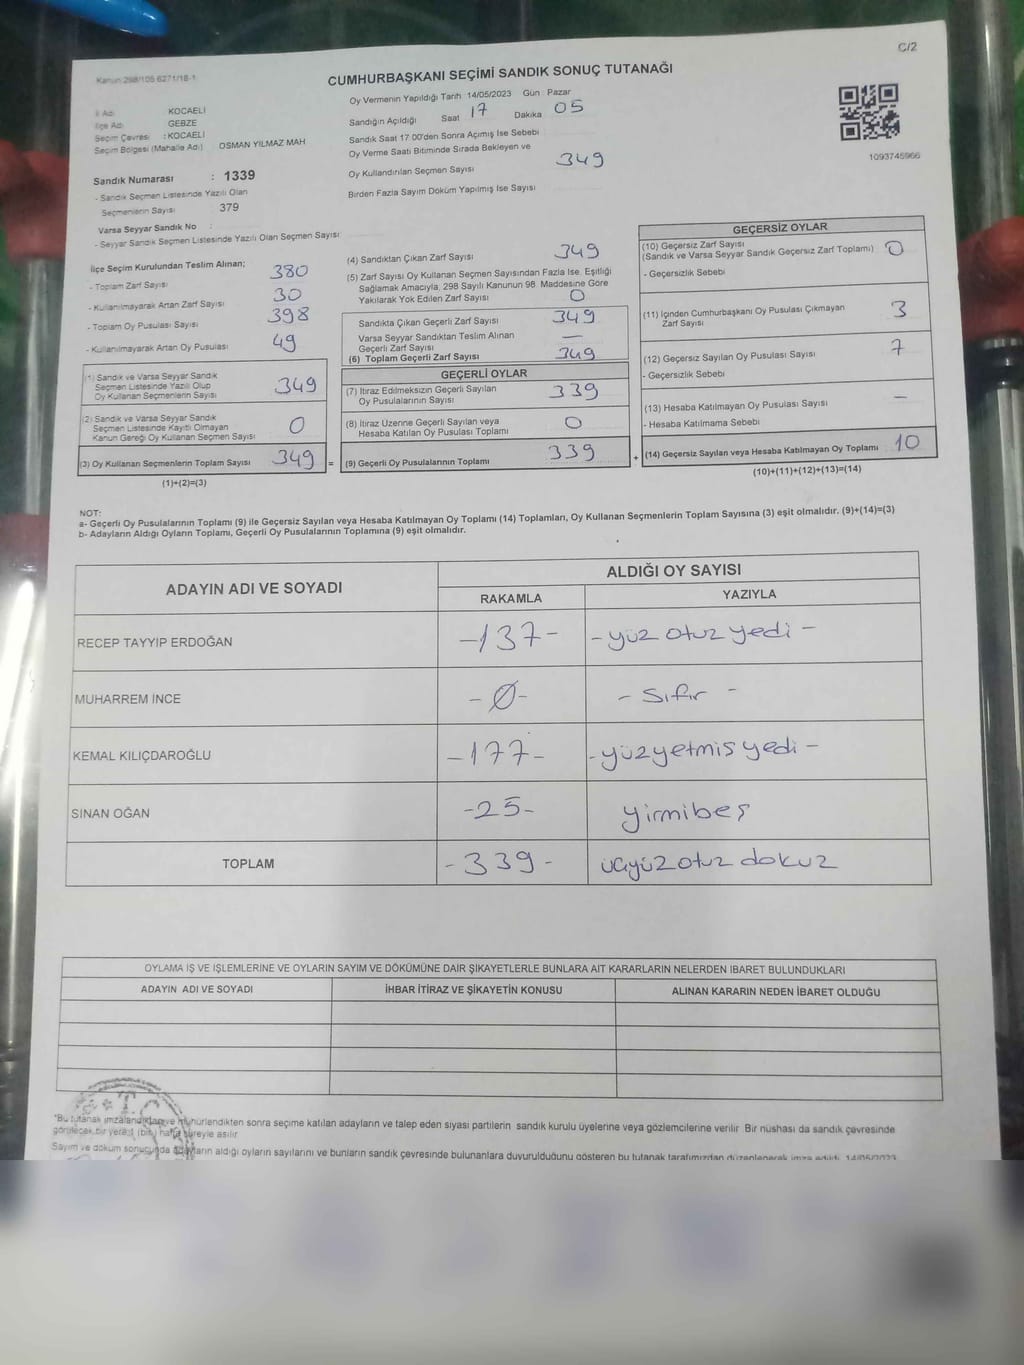 C/2
Kanun 298/105 6271/18-1
CUMHURBAŞKANI SEÇİMİ SANDIK SONUÇ TUTANAĞI
İl Adı KOCAELİ
İlçe Adı GEBZE
Seçim Çevresi : KOCAELİ
Seçim Bölgesi (Mahalle Adı) OSMAN YILMAZ MAH
Sandık Numarası : 1339
- Sandık Seçmen Listesinde Yazılı Olan
Seçmenlerin Sayısı 379
Varsa Seyyar Sandık No :
- Seyyar Sandık Seçmen Listesinde Yazılı Olan Seçmen Sayısı
Oy Vermenin Yapıldığı Tarih 14/05/2023 Gün : Pazar
Sandığın Açıldığı Saat 17 Dakika 05
Sandık Saat 17 00'den Sonra Açımış İse Sebebi
Oy Verme Saati Bitiminde Sırada Bekleyen ve
Oy Kullandırılan Seçmen Sayısı 349
Birden Fazla Sayım Döküm Yapılmış İse Sayısı
1093745966
İlçe Seçim Kurulundan Teslim Alınan;
- Toplam Zarf Sayısı 380
- Kullanılmayarak Artan Zarf Sayısı 30
- Toplam Oy Pusulası Sayısı 398
- Kullanılmayarak Artan Oy Pusulası 49
(1) Sandık ve Varsa Seyyar Sandık
Seçmen Listesinde Yazılı Olup
Oy Kullanan Seçmenlerin Sayısı 349
(2) Sandık ve Varsa Seyyar Sandık
Seçmen Listesinde Kayıtlı Olmayan
Kanun Gereği Oy Kullanan Seçmen Sayısı 0
(3) Oy Kullanan Seçmenlerin Toplam Sayısı 349 =
(1)+(2)=(3)
(4) Sandıktan Çıkan Zarf Sayısı 349
(5) Zarf Sayısı Oy Kullanan Seçmen Sayısından Fazla İse, Eşitliği
Sağlamak Amacıyla, 298 Sayılı Kanunun 98. Maddesine Göre
Yakılarak Yok Edilen Zarf Sayısı 0
Sandıkta Çıkan Geçerli Zarf Sayısı 349
Varsa Seyyar Sandıktan Teslim Alınan
Geçerli Zarf Sayısı —
(6) Toplam Geçerli Zarf Sayısı 349
GEÇERLİ OYLAR
(7) İtiraz Edilmeksizin Geçerli Sayılan
Oy Pusulalarının Sayısı 339
(8) İtiraz Üzerine Geçerli Sayılan veya
Hesaba Katılan Oy Pusulası Toplamı 0
(9) Geçerli Oy Pusulalarının Toplamı 339 +
GEÇERSİZ OYLAR
(10) Geçersiz Zarf Sayısı
(Sandık ve Varsa Seyyar Sandık Geçersiz Zarf Toplamı) 0
- Geçersizlik Sebebi
(11) İçinden Cumhurbaşkanı Oy Pusulası Çıkmayan
Zarf Sayısı 3
(12) Geçersiz Sayılan Oy Pusulası Sayısı 7
- Geçersizlik Sebebi
(13) Hesaba Katılmayan Oy Pusulası Sayısı —
- Hesaba Katılmama Sebebi
(14) Geçersiz Sayılan veya Hesaba Katılmayan Oy Toplamı 10
(10)+(11)+(12)+(13)=(14)
NOT:
a- Geçerli Oy Pusulalarının Toplamı (9) ile Geçersiz Sayılan veya Hesaba Katılmayan Oy Toplamı (14) Toplamları, Oy Kullanan Seçmenlerin Toplam Sayısına (3) eşit olmalıdır. (9)+(14)=(3)
b- Adayların Aldığı Oyların Toplamı, Geçerli Oy Pusulalarının Toplamına (9) eşit olmalıdır.
ADAYIN ADI VE SOYADI ALDIĞI OY SAYISI
RAKAMLA YAZIYLA
RECEP TAYYIP ERDOĞAN -137- -yüz otuz yedi-
MUHARREM İNCE -0- - sıfır -
KEMAL KILIÇDAROĞLU -177- -yüzyetmiş yedi-
SİNAN OĞAN -25- yirmibeş
TOPLAM -339- üçyüz otuz dokuz
OYLAMA İŞ VE İŞLEMLERİNE VE OYLARIN SAYIM VE DÖKÜMÜNE DAİR ŞİKAYETLERLE BUNLARA AİT KARARLARIN NELERDEN İBARET BULUNDUKLARI
ADAYIN ADI VE SOYADI İHBAR İTİRAZ VE ŞİKAYETİN KONUSU ALINAN KARARIN NEDEN İBARET OLDUĞU
T.
*Bu tutanak imzalandıktan ve mühürlendikten sonra seçime katılan adayların ve talep eden siyasi partilerin sandık kurulu üyelerine veya gözlemcilerine verilir Bir nüshası da sandık çevresinde
görülecek bir yere 1 (bir) hafta süreyle asılır
Sayım ve döküm sonucunda adayların aldığı oyların sayılarını ve bunların sandık çevresinde bulunanlara duyurulduğunu gösteren bu tutanak tarafımızdan düzenlenerek imza edildi. 14/05/2023